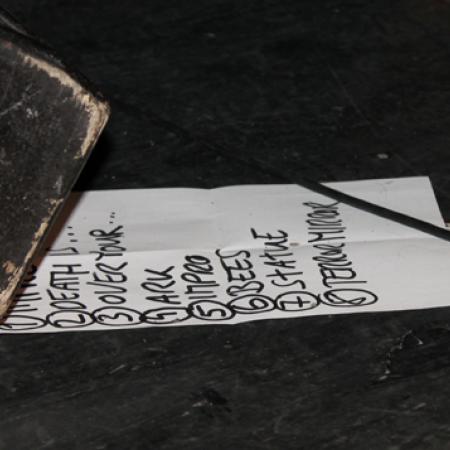 ①
② DEATH IS...
③ OVER YOUR...
④ ARK
⑤ IMPRO
⑥ BEES
⑦ STATUE
⑧ TERROR MIRROR